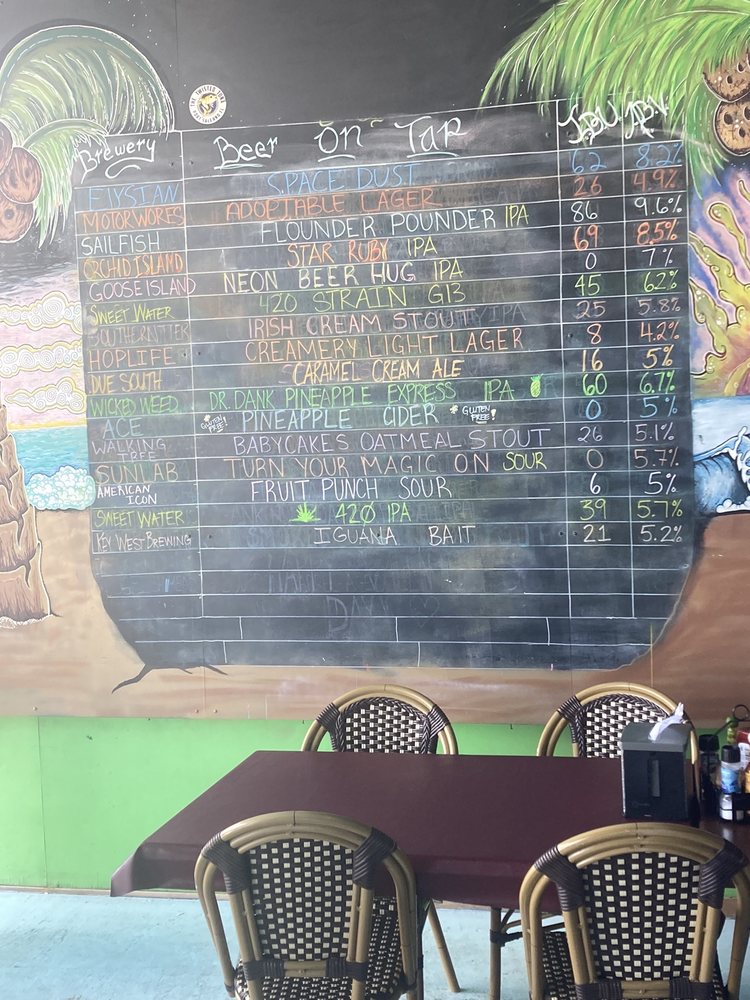 Brewery Beer On Tap IBU ABV
ELYSIAN SPACE DUST 62 8.2%
MOTORWORKS ADOPTABLE LAGER 26 4.9%
SAILFISH FLOUNDER POUNDER IPA 86 9.6%
ORCHID ISLAND STAR RUBY IPA 69 8.5%
GOOSE ISLAND NEON BEER HUG IPA 0 7%
SWEET WATER 420 STRAIN G13 45 62%
SOUTHERN TIER IRISH CREAM STOUT 25 5.8%
HOPLIFE CREAMERY LIGHT LAGER 8 4.2%
DUE SOUTH CARAMEL CREAM ALE 16 5%
WICKED WEED DR. DANK PINEAPPLE EXPRESS IPA 60 6.7%
ACE GLUTEN FREE! PINEAPPLE CIDER GLUTEN FREE! 0 5%
WALKING TREE BABYCAKES OATMEAL STOUT 26 5.1%
SUNLAB TURN YOUR MAGIC ON SOUR 0 5.7%
AMERICAN ICON FRUIT PUNCH SOUR 6 5%
SWEET WATER 420 IPA 39 5.7%
KEY WEST BREWING IGUANA BAIT 21 5.2%